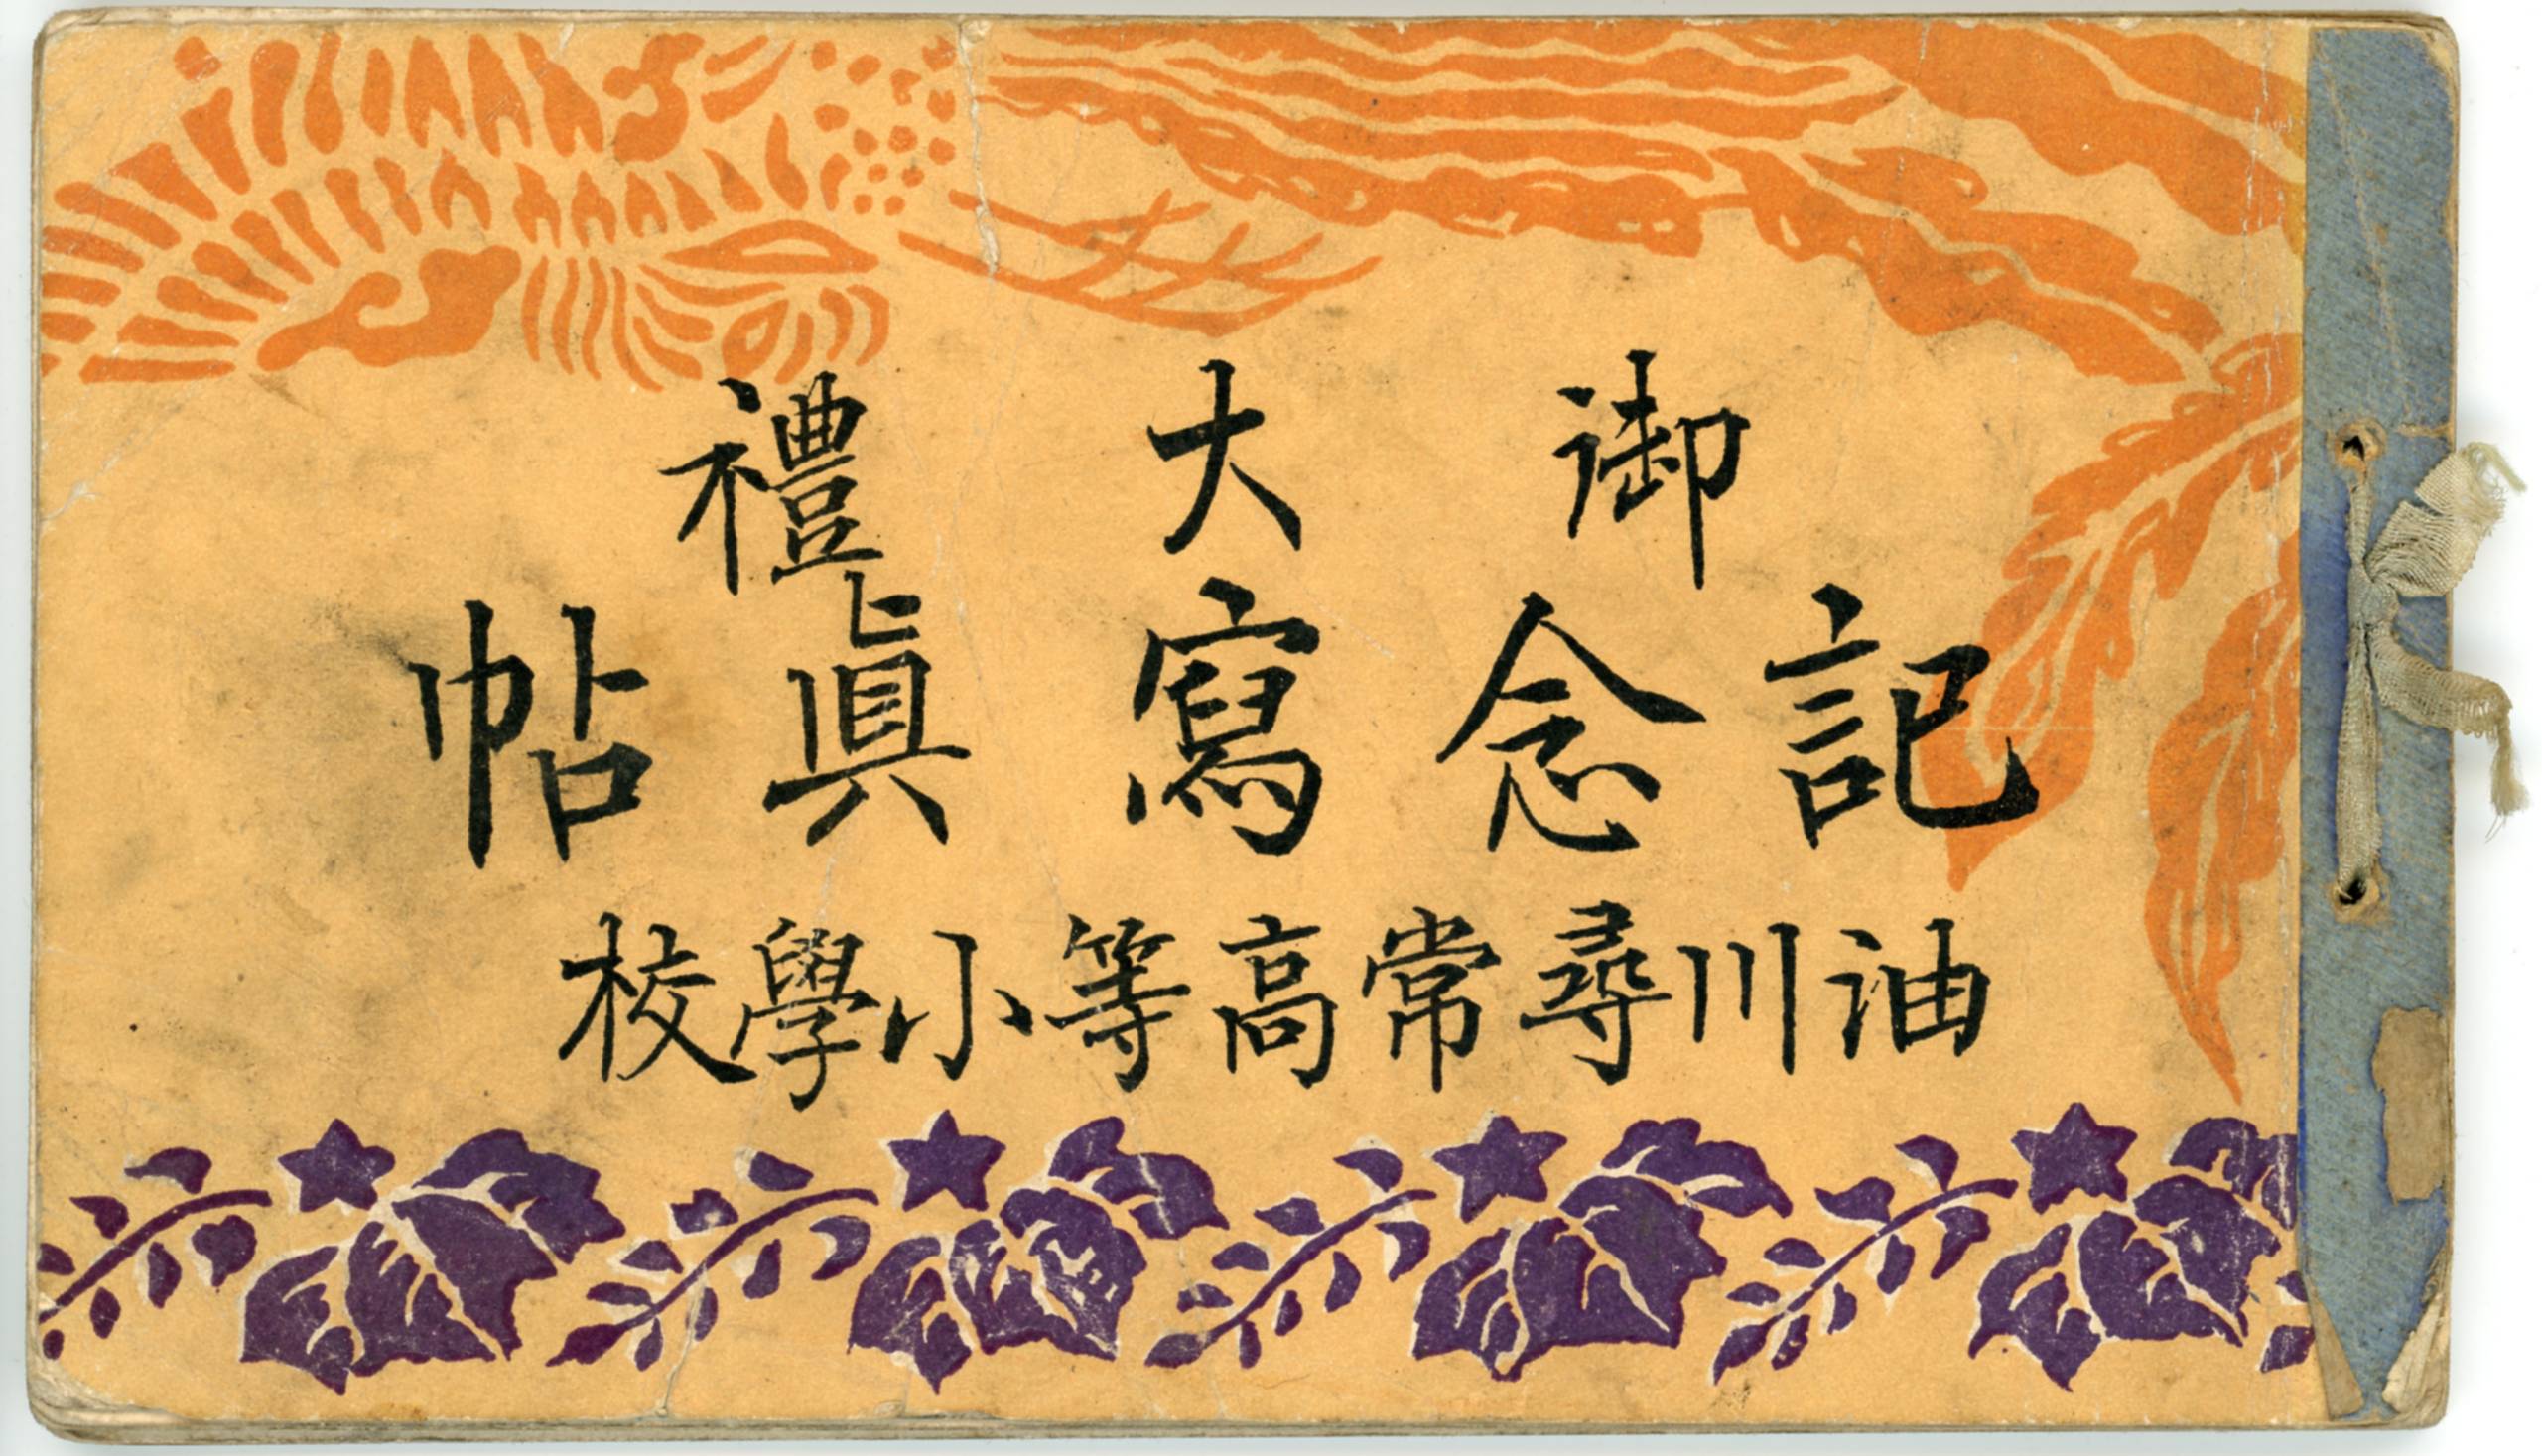 御大禮
記念寫眞帖
油川尋常高等小學校